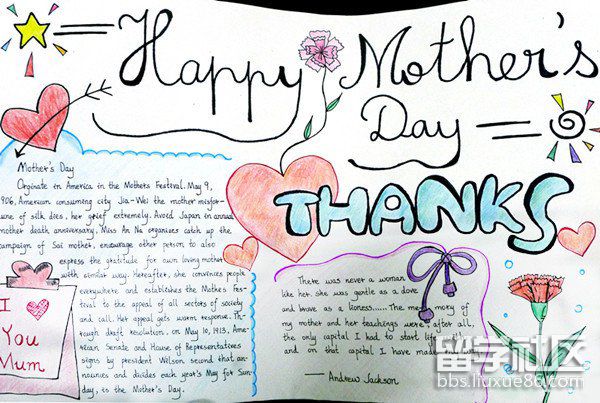 Happy Mother's
Day
THANKS
Mother's Day
Orginate in America in the Mothers Festival. May 9,
906, American consuming city Jia-Wei the mother misfor-
une of silk dies, her grief extremely. Avoid Japan in annual
mother death anniversary, Miss An Na organises catch up the
ampaign of Sai mother, encourage other person to also
express the gratitude for own loving mother
with similar way. Hereafter, she convinces people
everywhere and establishes the Mothes Fes-
tival to the appeal of all sectors of society
and call. Her appeal gets worm response. Th-
rough draft resolution, on May 10, 1913, Ame-
rican Senate and House of Representatives
signs by president Welson second that an-
nounces and decides each year's May for Sun-
day, is the Mother's Day.
I
You
Mum
There was never a woman
like her. she was gentle as a dove
and brave as a lioness...... The memory of
my mother and her teachings were, after all,
the only capital I had to start life with,
and on that capital I have made my way.
— Andrew Jackson
留学社区
bbs.liuxue86.com